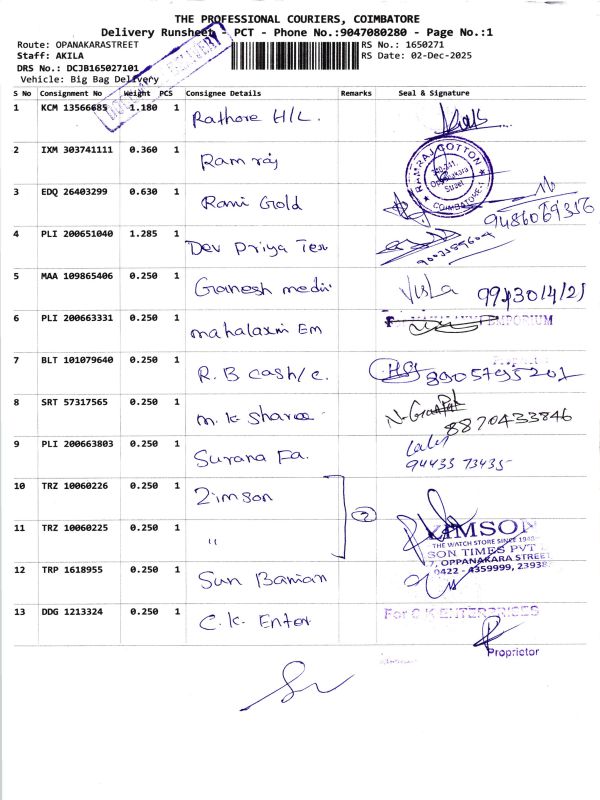 THE PROFESSIONAL COURIERS, COIMBATORE
Delivery Runsheet - PCT - Phone No.:9047080280 - Page No.:1
Route: OPANAKARASTREET
RS No.: 1650271
Staff: AKILA
RS Date: 02-Dec-2025
DRS No.: DCJB165027101
Vehicle: Big Bag Delivery
S No Consignment No Weight PCS Consignee Details Remarks Seal & Signature
1 KCM 13566685 1.180 1 Rathore H/L.
2 IXM 303741111 0.360 1 Ramraj
RAMRAJ COTTON
Oppanakara
Street
COIMBATORE-1
3 EDQ 26403299 0.630 1 Rani Gold
9486069356
4 PLI 200651040 1.285 1 Dev Priya Tex
5 MAA 109865406 0.250 1 Ganesh medi
6 PLI 200663331 0.250 1 mahalaxmi Em
EMPORIUM
7 BLT 101079640 0.250 1 R. B cash/c.
8905795201
8 SRT 57317565 0.250 1 m. k sharee
8870433846
9 PLI 200663803 0.250 1 Surana Fa.
94433 73435
10 TRZ 10060226 0.250 1 Zimson
2
11 TRZ 10060225 0.250 1 "
ZIMSON
THE WATCH STORE SINCE 1948
SON TIMES PVT
7, OPPANAKARA STREET
0422 - 4359999, 23938
12 TRP 1618955 0.250 1 Sun Banian
13 DDG 1213324 0.250 1 C.K. Enter
For C K ENTERPRISES
Proprietor